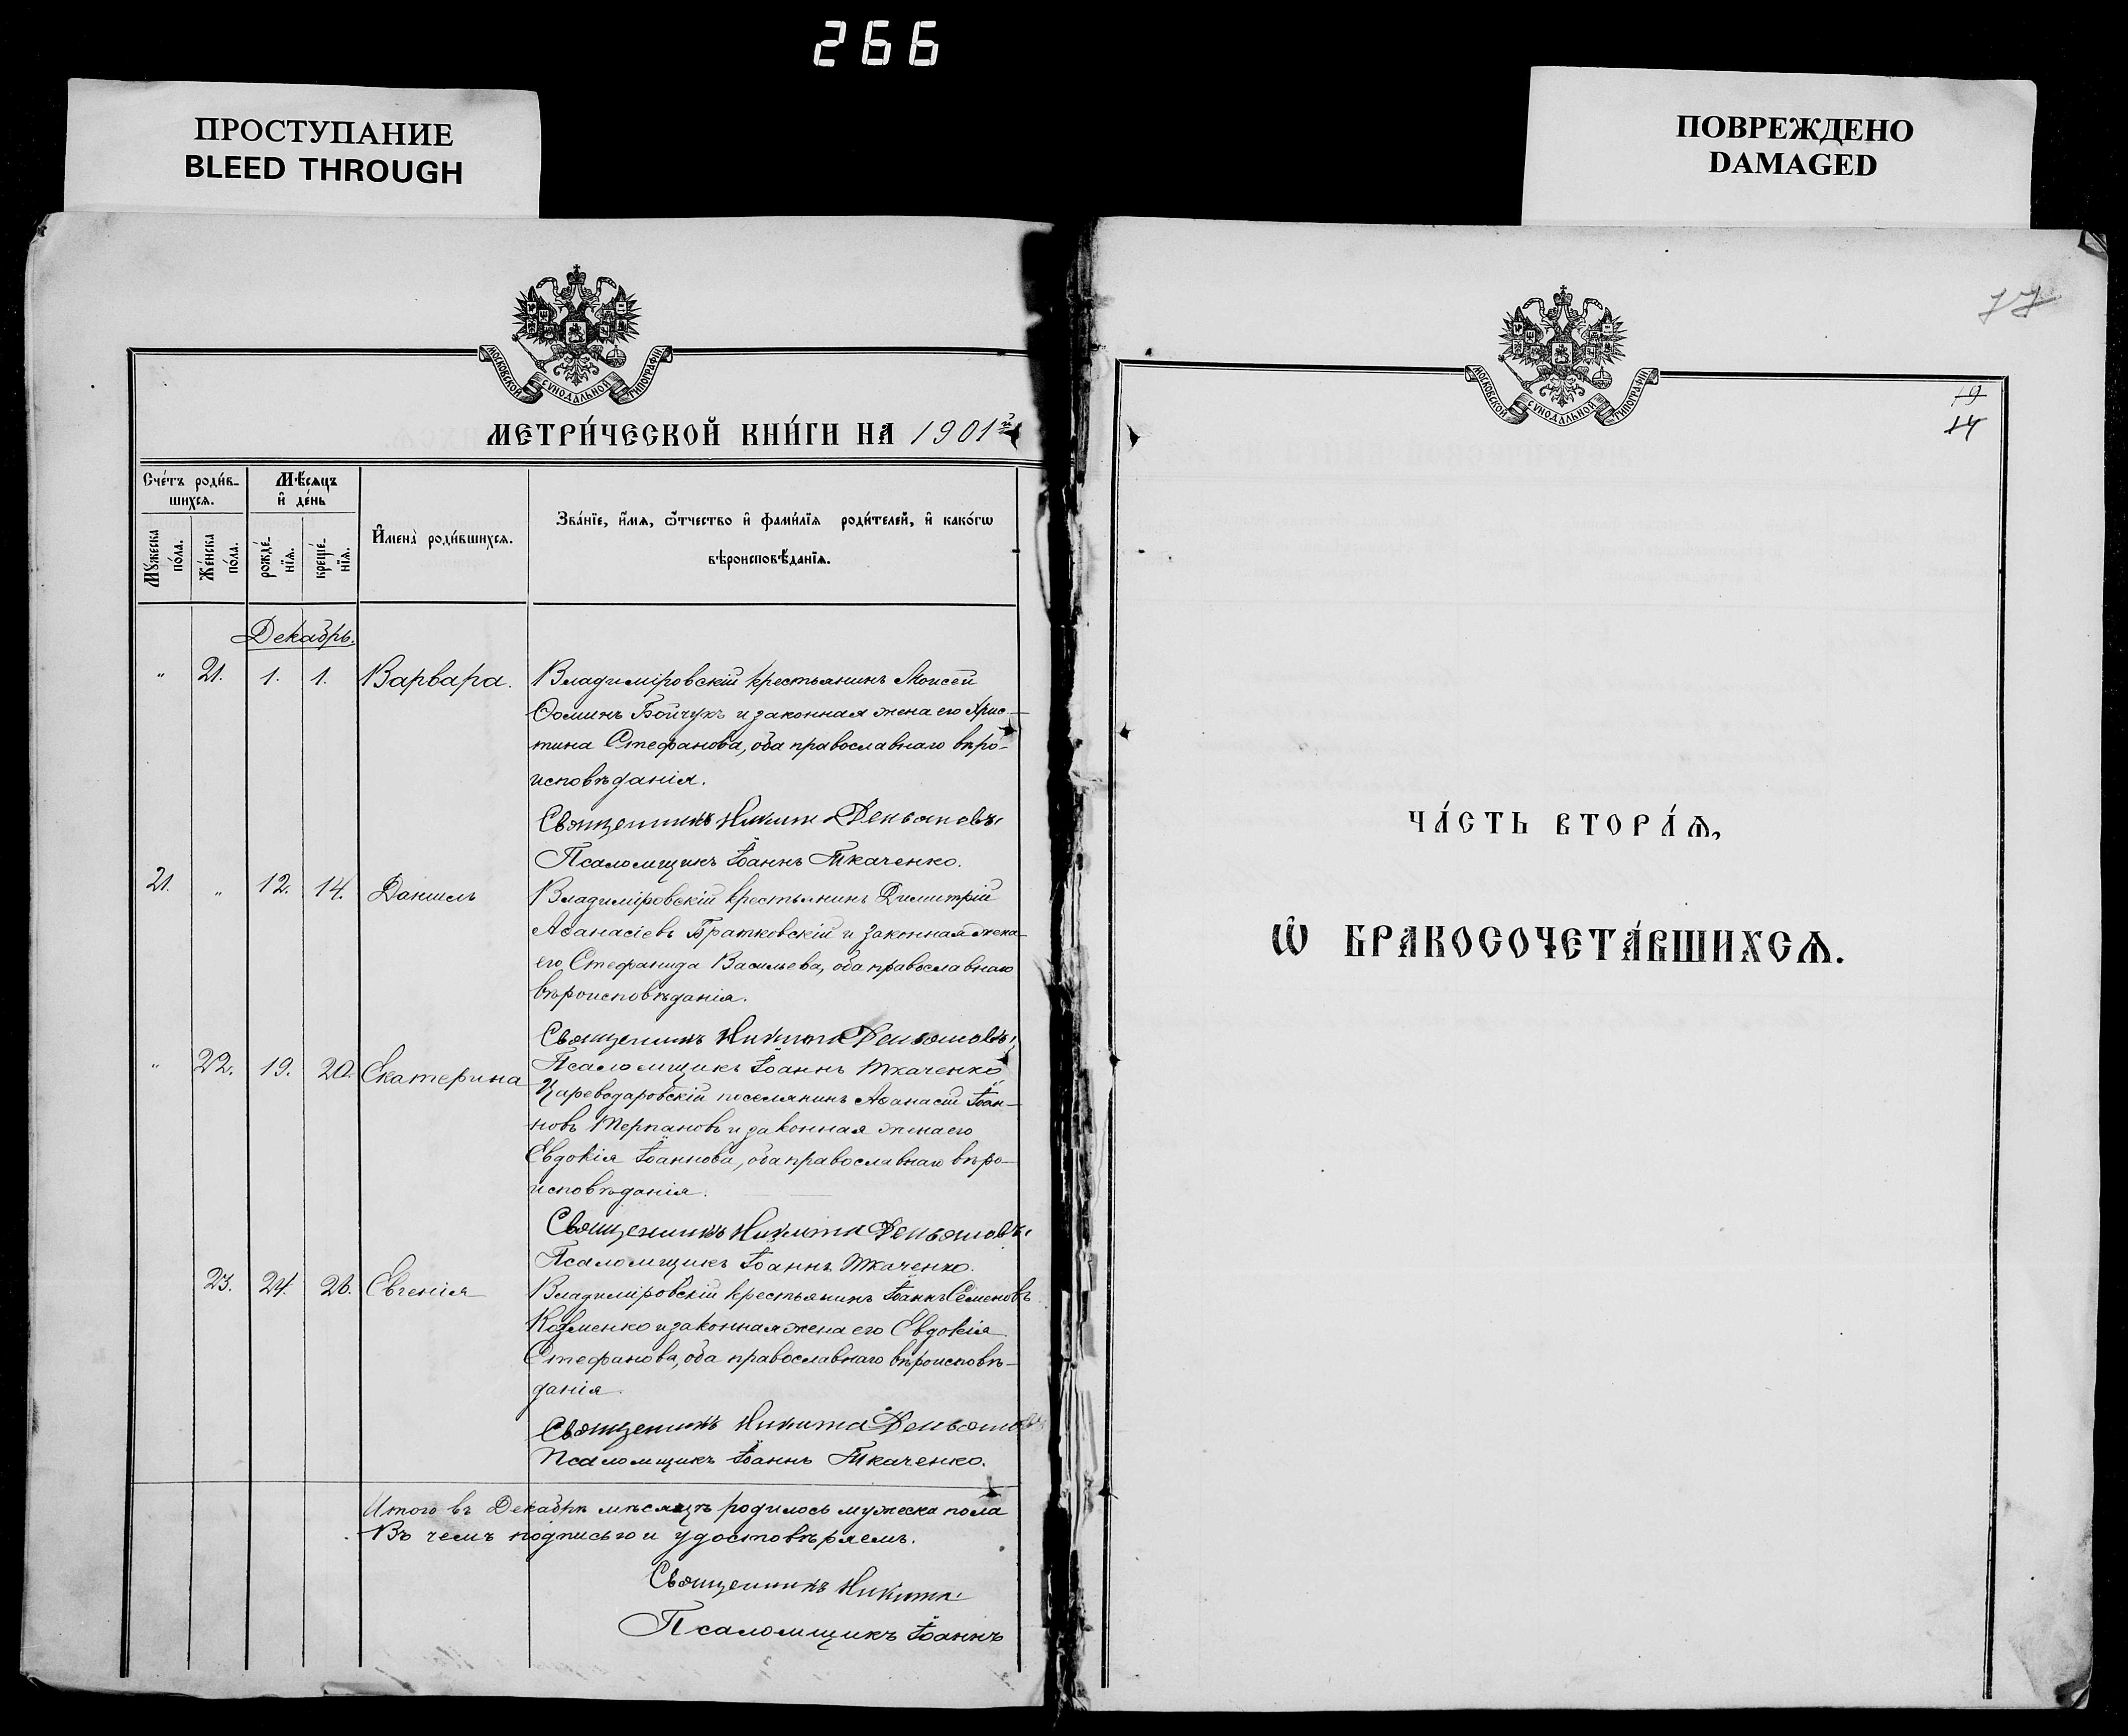 266
ПРОСТУПАНИЕ
BLEED THROUGH
ПОВРЕЖДЕНО
DAMAGED
МОСКОВСКОЙ СѴНОДАЛЬНОЙ ТИПОГРАФІИ
МЕТРИ́ЧЕСКОЙ КНИ́ГИ НА 1901й
Сче́тъ роди́в-
шихсѧ.
Мѣ́сѧцъ
и҆ де́нь
Мꙋ́жеска
по́ла.
Же́нска
по́ла.
рожде́-
нїѧ.
креще́-
нїѧ.
И҆мена̀ роди́вшихсѧ.
Зва́нїе, и҆́мѧ, ѻ҆́тчество и҆ фами́лїѧ роди́телей, и҆ како́гѡ
вѣроисповѣ́данїѧ.
Декабрь.
" 21. 1. 1. Варвара. Владиміровскій крестьянинъ Моисей
Ѳоминъ Бойчукъ и законная жена его Хрис-
тина Стефанова, оба православнаго вѣро-
исповѣданія.
Священникъ Никита Демьяновъ
Псаломщикъ Іоаннъ Ткаченко.
21. " 12. 14. Даниилъ Владиміровскій крестьянинъ Димитрій
Аѳанасіевъ Братковскій и законная жена
его Стефанида Васильева, оба православнаго
вѣроисповѣданія.
Священникъ Никита Демьяновъ
Псаломщикъ Іоаннъ Ткаченко
" 22. 19. 20. Екатерина Цареводаровскій поселянинъ Аѳанасій Іоан-
новъ Терпановъ и законная жена его
Евдокія Іоаннова, оба православнаго вѣро-
исповѣданія.
Священникъ Никита Демьяновъ
Псаломщикъ Іоаннъ Ткаченко.
23. 24. 26. Евгенія Владиміровскій крестьянинъ Іоаннъ Семеновъ
Козменко и законная жена его Евдокія
Стефанова, оба православнаго вѣроисповѣ-
данія.
Священникъ Никита Демьяновъ
Псаломщикъ Іоаннъ Ткаченко.
Итого въ Декабрѣ мѣсяцѣ родилось мужеска пола
Въ чемъ подписью и удостовѣряемъ.
Священникъ Никита
Псаломщикъ Іоаннъ
77
МОСКОВСКОЙ СѴНОДАЛЬНОЙ ТИПОГРАФІИ
19
14
ЧА́СТЬ ВТОРА́Ѧ,
Ѡ҆ БРАКОСОЧЕТА́ВШИХСѦ.